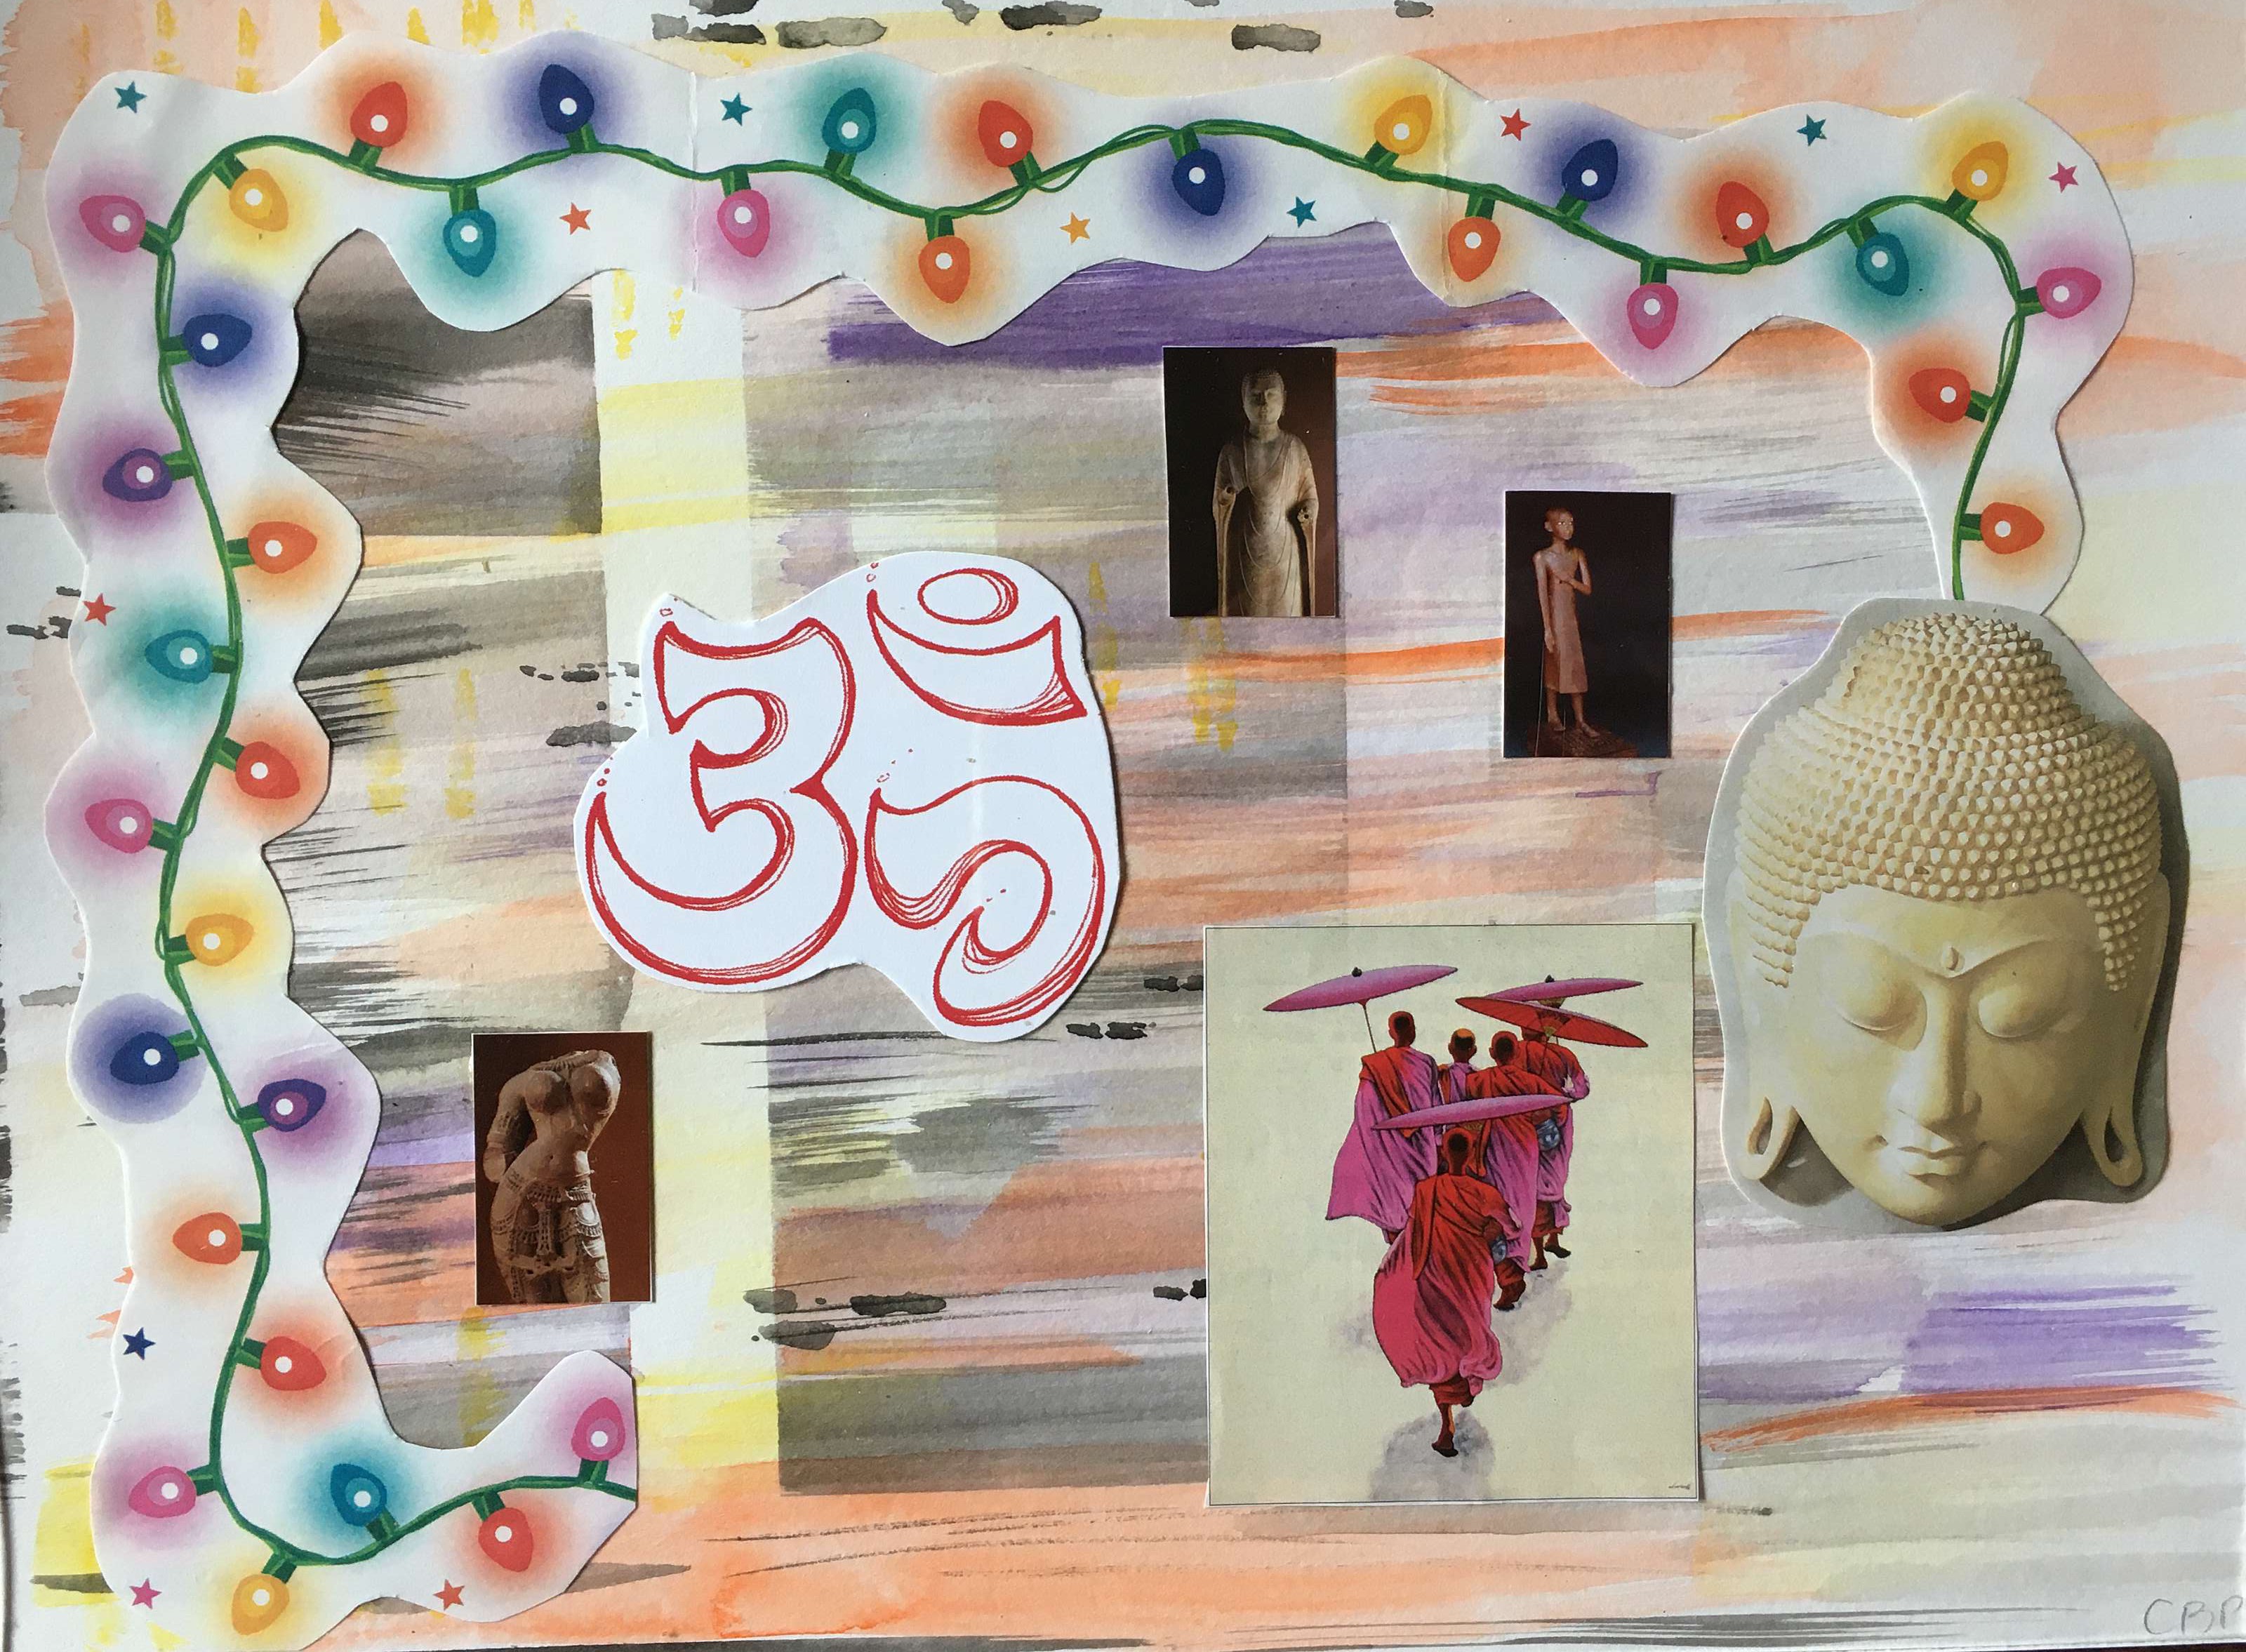 ॐ
CBP